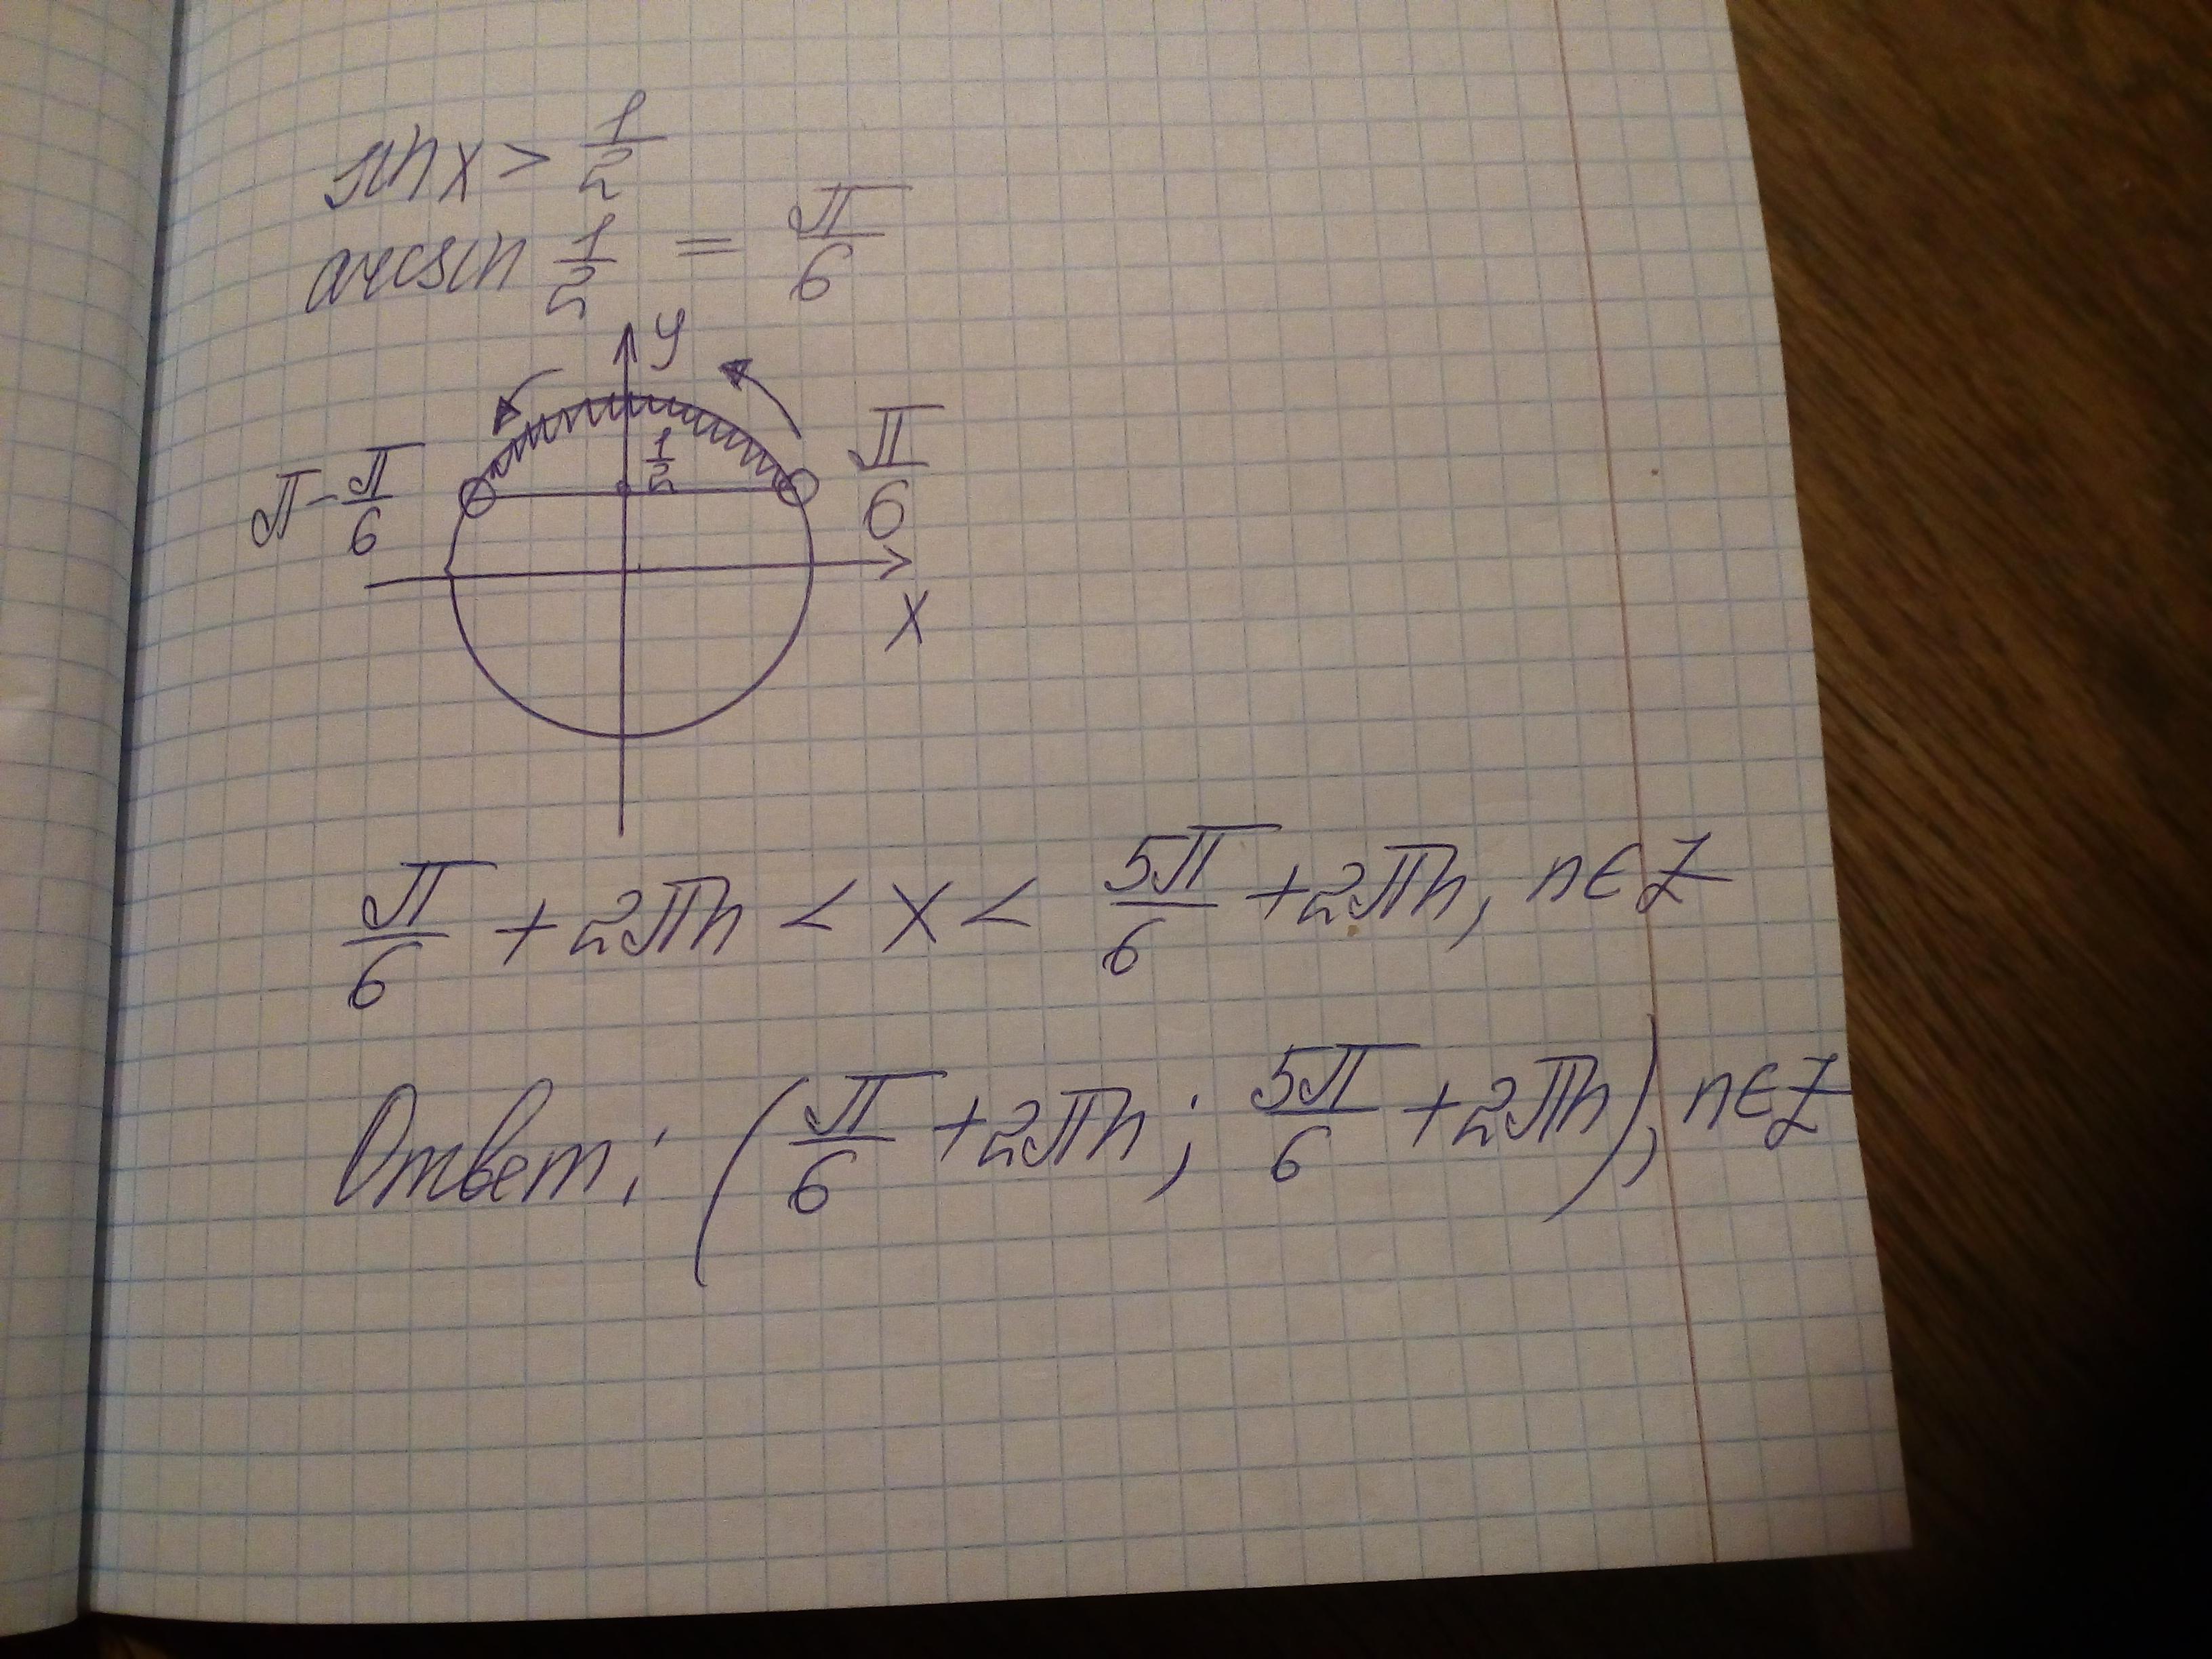 sin x > 1/2
arcsin 1/2 = π/6
y
1/2
π/6
π - π/6
x
π/6 + 2πn < x < 5π/6 + 2πn, n ∈ Z
Ответ: (π/6 + 2πn; 5π/6 + 2πn), n ∈ Z